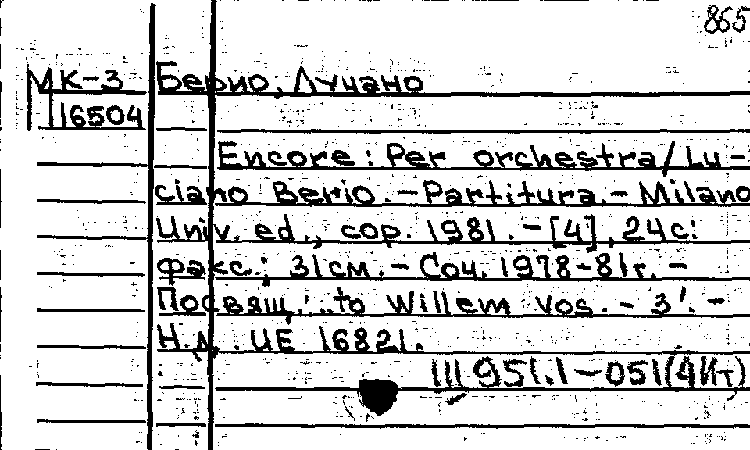 865
МК-3 Берио, Лучано
16504
Encore: Per orchestra/Lu-
ciano Berio.-Partitura.-Milano
Univ. ed., cop. 1981.-[4], 24с:
факс.; 31см.-Соч. 1978-81г.-
Посвящ.: to Willem Vos.-3'.-
Н.д. UE 16821.
III 951.1-051(4Ит)